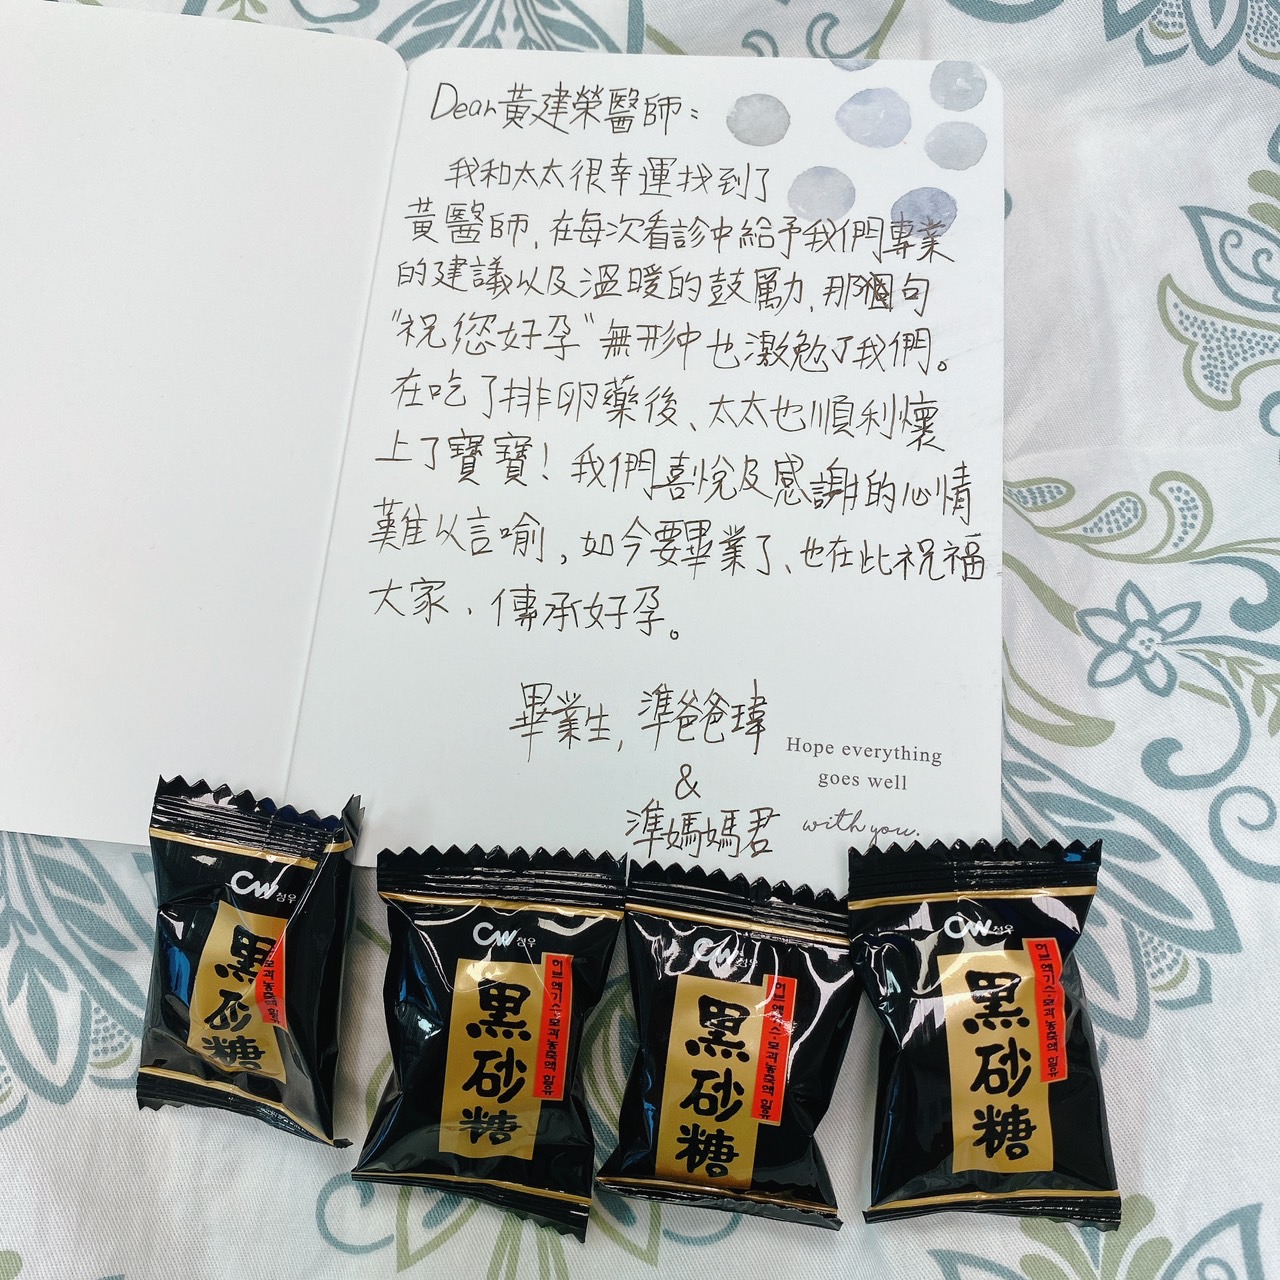 Dear 黃建榮醫師：
我和太太很幸運找到了
黃醫師，在每次看診中給予我們專業
的建議以及溫暖的鼓勵，那句
"祝您好孕"無形中也激勉了我們。
在吃了排卵藥後、太太也順利懷
上了寶寶！我們喜悅及感謝的心情
難以言喻，如今要畢業了、也在此祝福
大家、傳承好孕。
畢業生，準爸爸瑋
&
準媽媽君
Hope everything
goes well
with you.
CW 청우
黑砂糖
CW 청우
黑砂糖
허브엑기스·모과농축액 함유
CW 청우
黑砂糖
허브엑기스·모과농축액 함유
CW 청우
黑砂糖
허브엑기스·모과농축액 함유